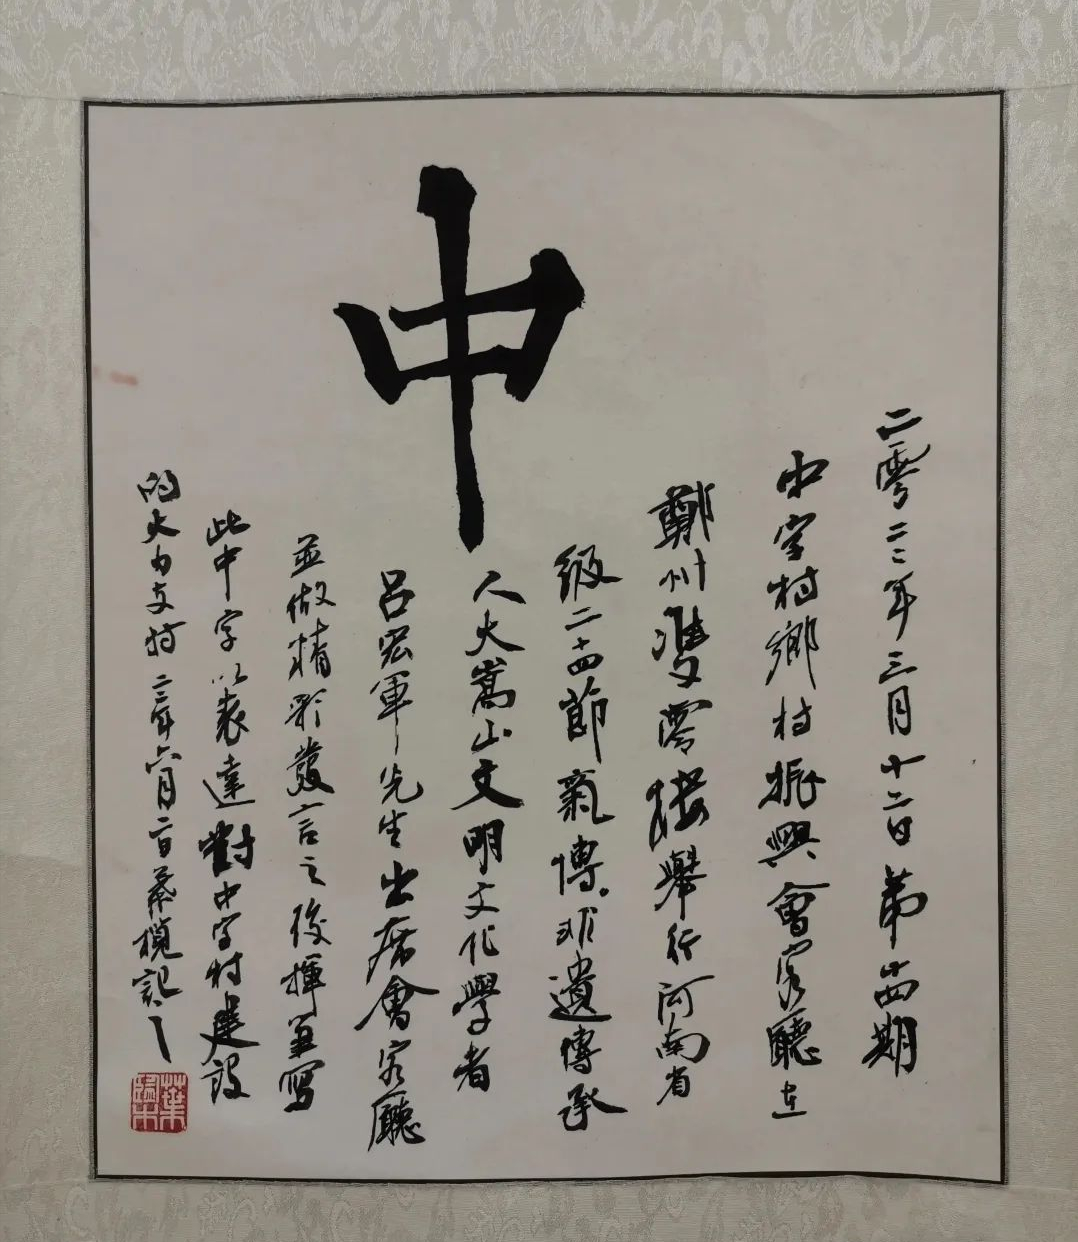 中
二零二二年三月十二日第廿四期
中字村鄉村振興會客廳在
鄭州雙零樓舉行河南省
級二十四節氣傳非遺傳承
人大嵩山文明文化學者
呂宏軍先生出席會客廳
並做精彩發言之後揮筆寫
此中字以表達對中字村建設
的大力支持 二二年六月二日葉欖記
葉